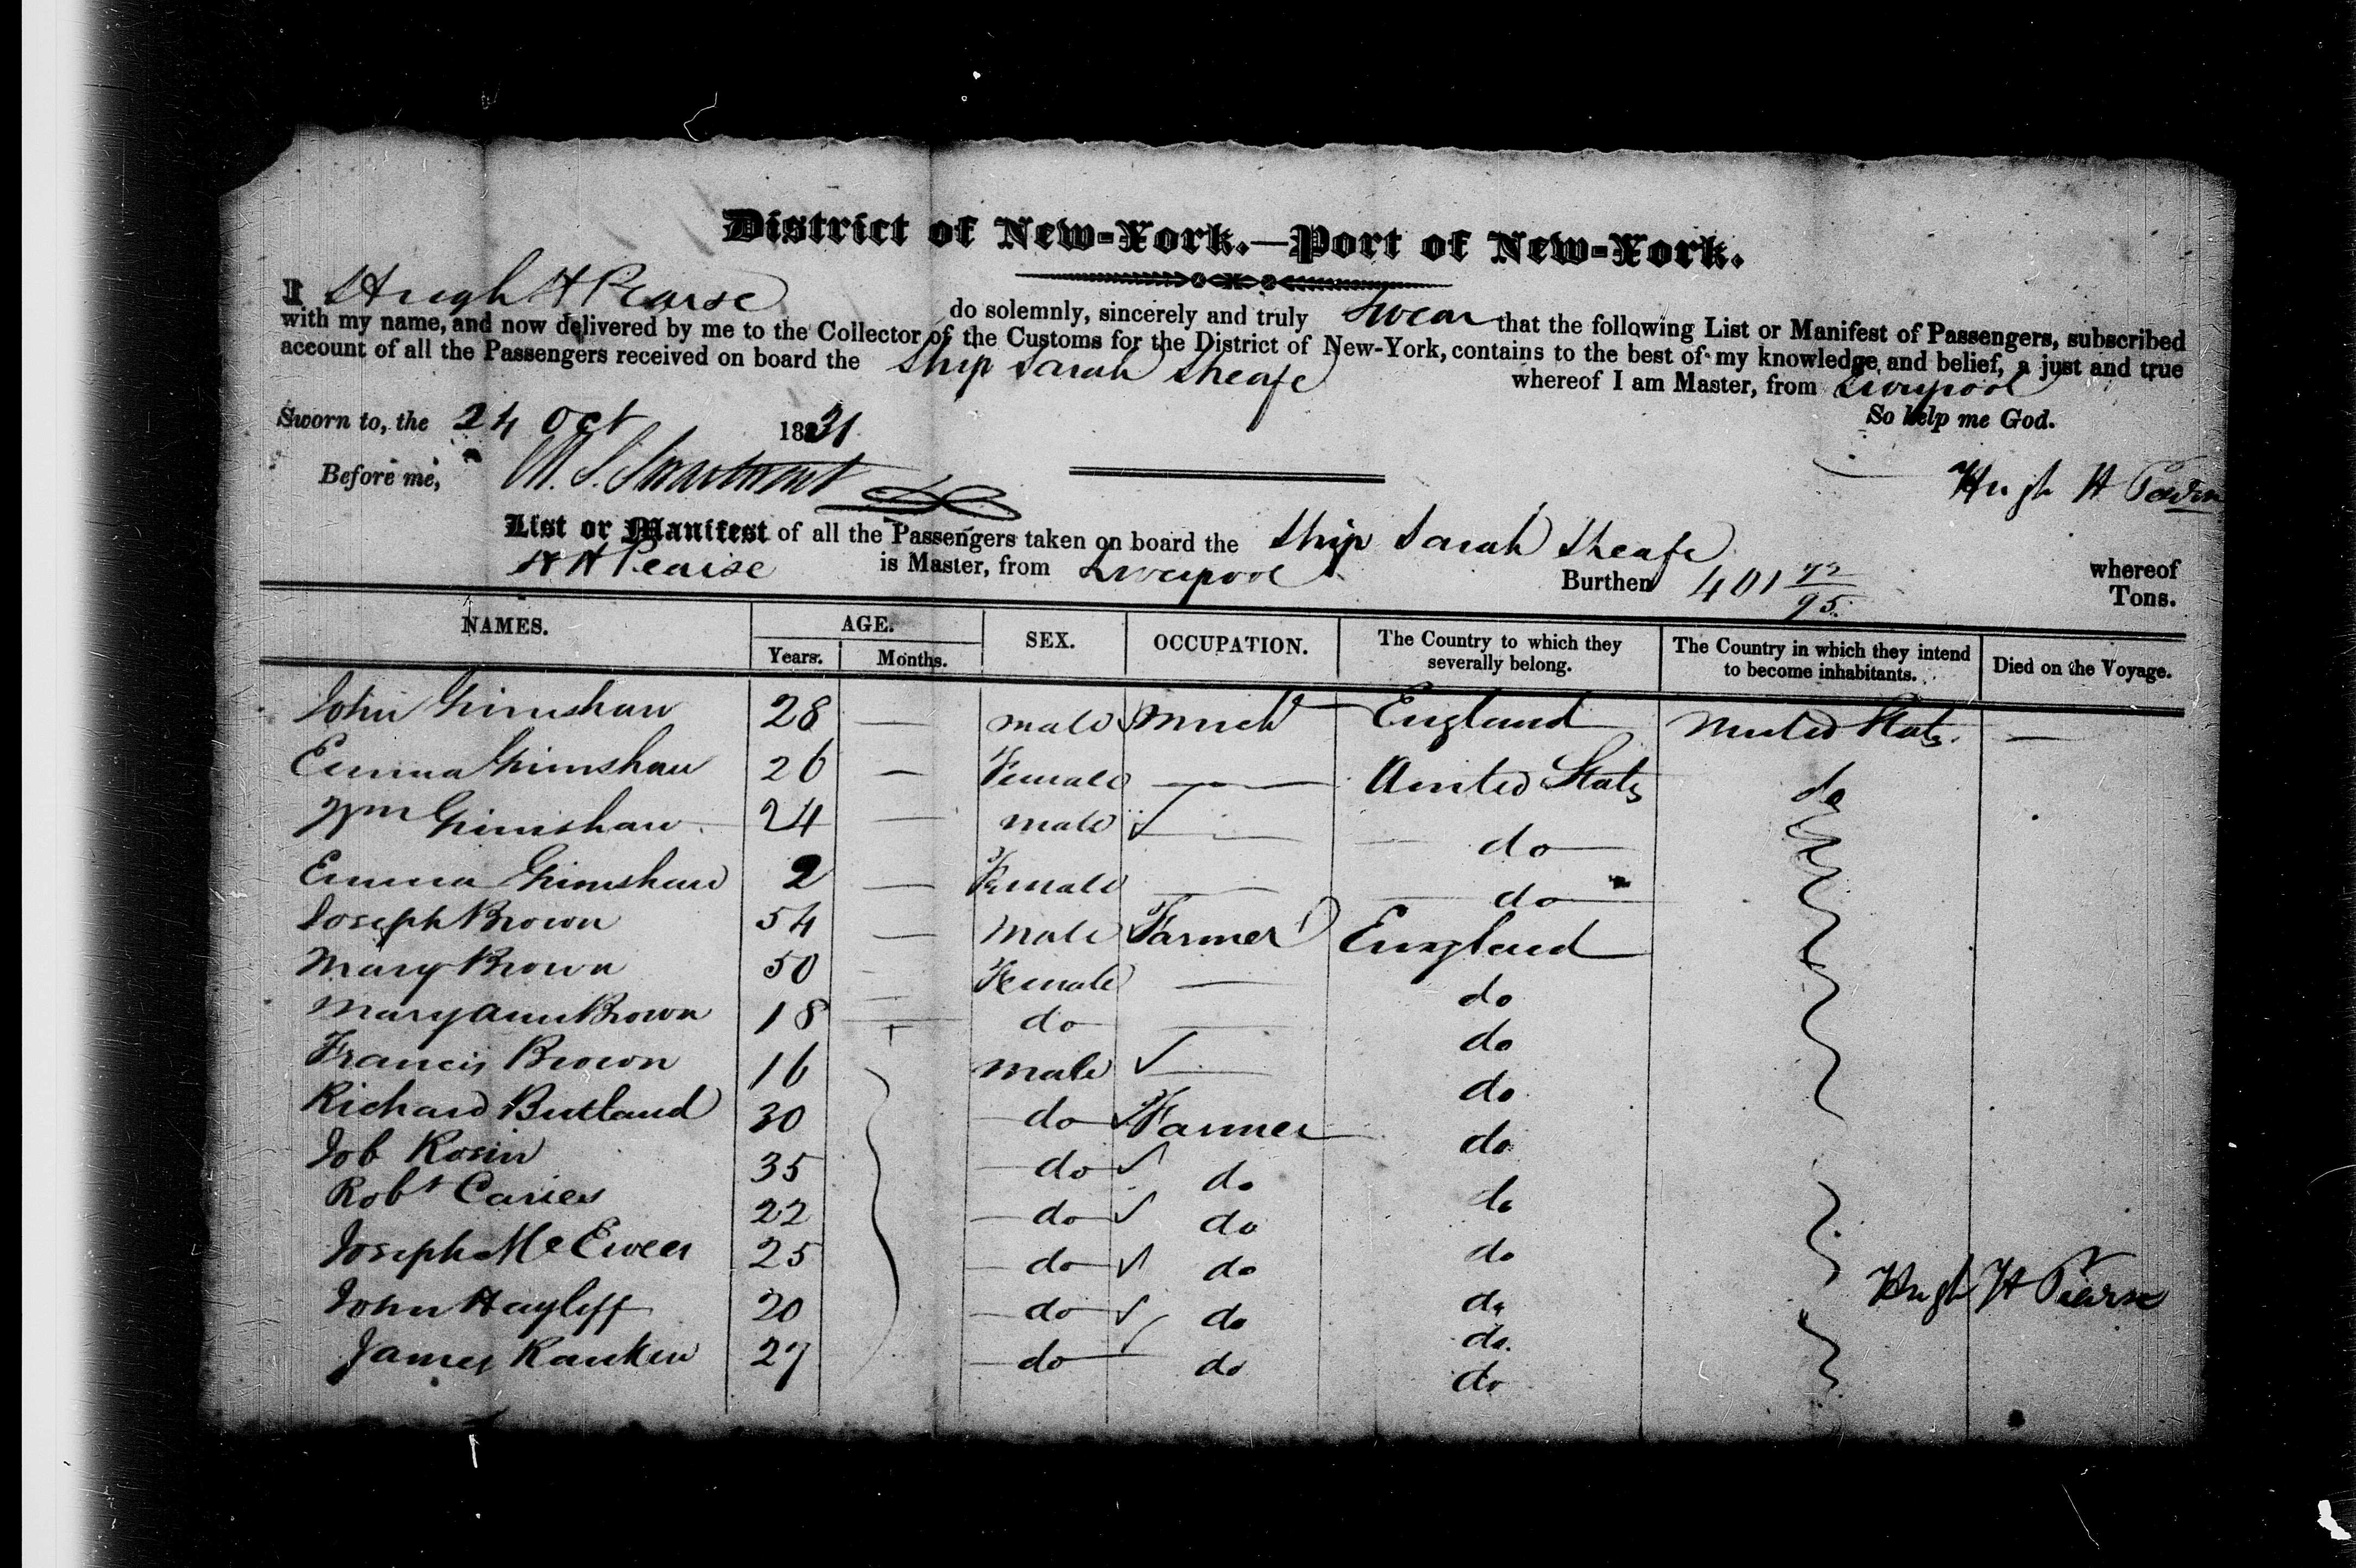 District of New-York.—Port of New-York.
I Hugh H Pearse do solemnly, sincerely and truly swear that the following List or Manifest of Passengers, subscribed
with my name, and now delivered by me to the Collector of the Customs for the District of New-York, contains to the best of my knowledge and belief, a just and true
account of all the Passengers received on board the Ship Sarah Sheafe whereof I am Master, from Liverpool
So help me God.
Sworn to, the 24 Oct 1831
Before me, Hugh H Pearse
List or Manifest of all the Passengers taken on board the Ship Sarah Sheafe whereof
H H Pearse is Master, from Liverpool Burthen 401 72/95 Tons.
NAMES. AGE. Years. Months. SEX. OCCUPATION. The Country to which they severally belong. The Country in which they intend to become inhabitants. Died on the Voyage.
John Grimshaw 28 — male Mercht England United States —
Emma Grimshaw 26 — Female — United States do
Wm Grimshaw 24 — male — do
Emma Grimshaw 2 — Female — do
Joseph Brown 54 — Male Farmer England
Mary Brown 50 — Female — do
Mary Ann Brown 18 — do — do
Francis Brown 16 male — do
Richard Butland 30 do Farmer do
Job Rosin 35 do do do
Robt 22 do do do
Joseph McEwen 25 do do do
John Hayliff 20 do do do
James Rankin 27 do do do
Hugh H Pearse